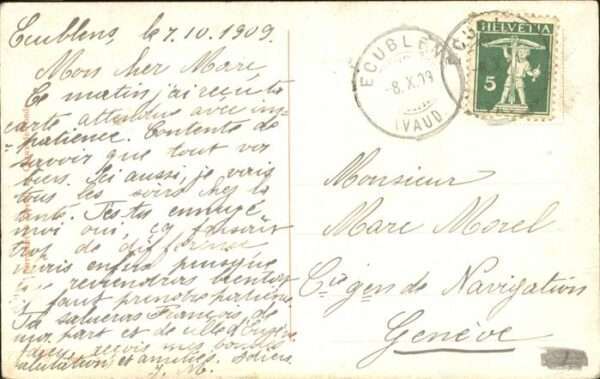 Ecublens, le 7.10.1909.
Mon cher Marc,
Ce matin, j'ai reçu ta
carte attendue avec im-
patience. Contente de
savoir que tout va
bien. Ici aussi, je vais
tous les soirs chez ta
tante. T'es-tu ennuyé
moi oui, ça faisait
trop de différence
mais enfin puisque
tu reviendras bientôt
il faut prendre patience
Tu salueras François de
ma part et de celle d'Eugène
reçois mes bonnes
salutations et amitiés.
J. M.
ECUBLENS
-8.X.09
(VAUD)
ECU
HELVETIA
5
Monsieur
Marc Morel
Cie gen de Navigation
Genève